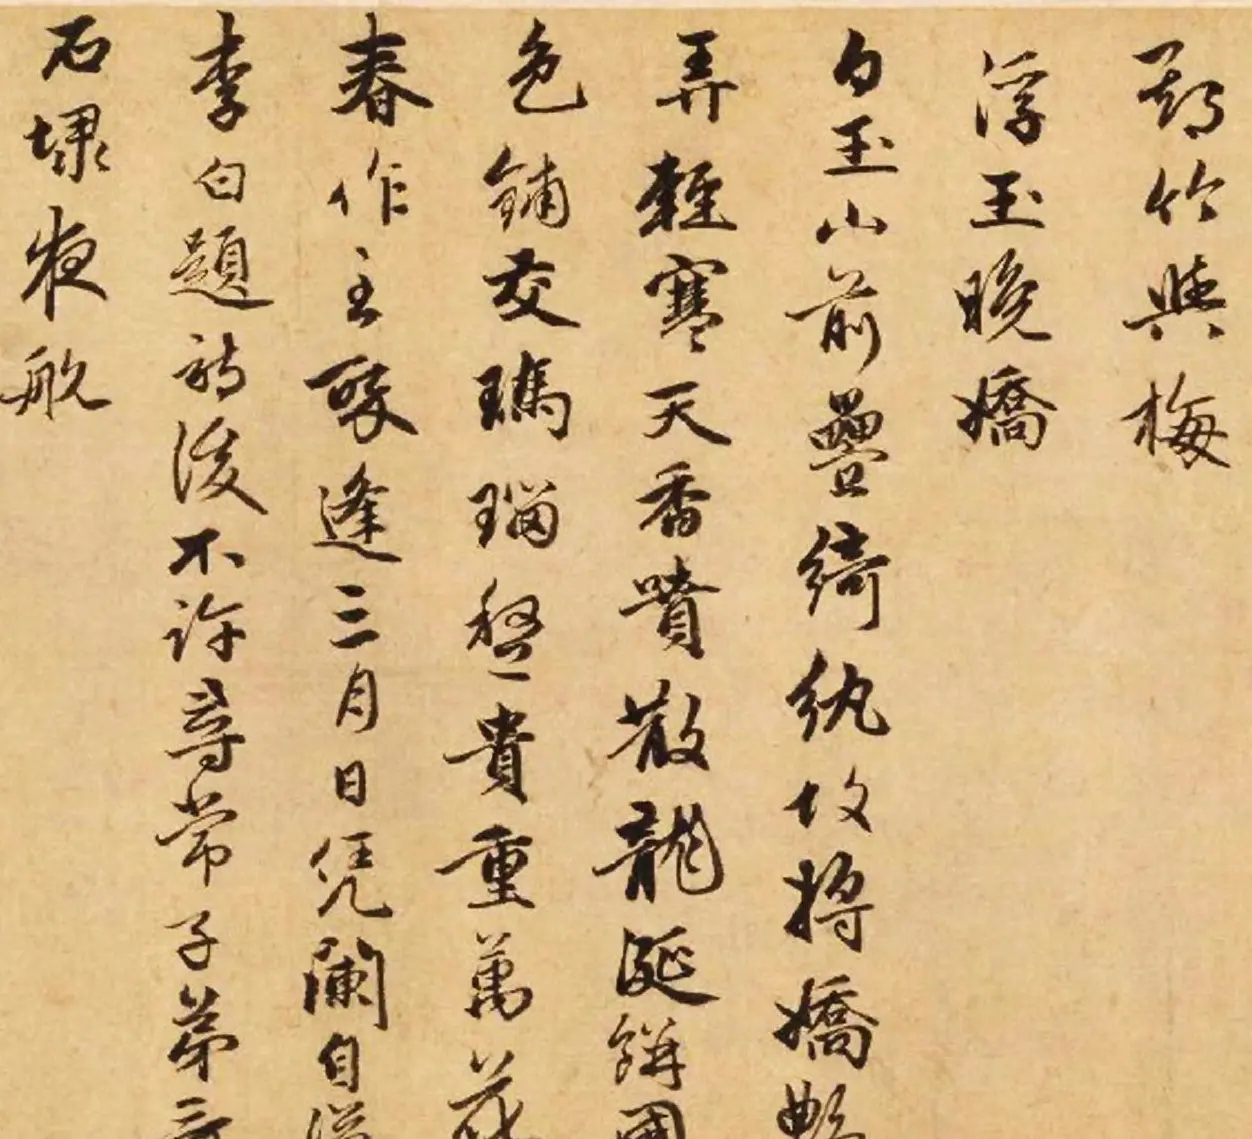 竹與梅
浮玉晚嬌
白玉山前疊綺紈故將嬌艷
弄輕寒天香噴散龍涎餅國
色鋪交瑪瑙盤貴重萬花
春作主聚逢三月日凭闌自從
李白題詩後不許尋常子弟
石埭夜航